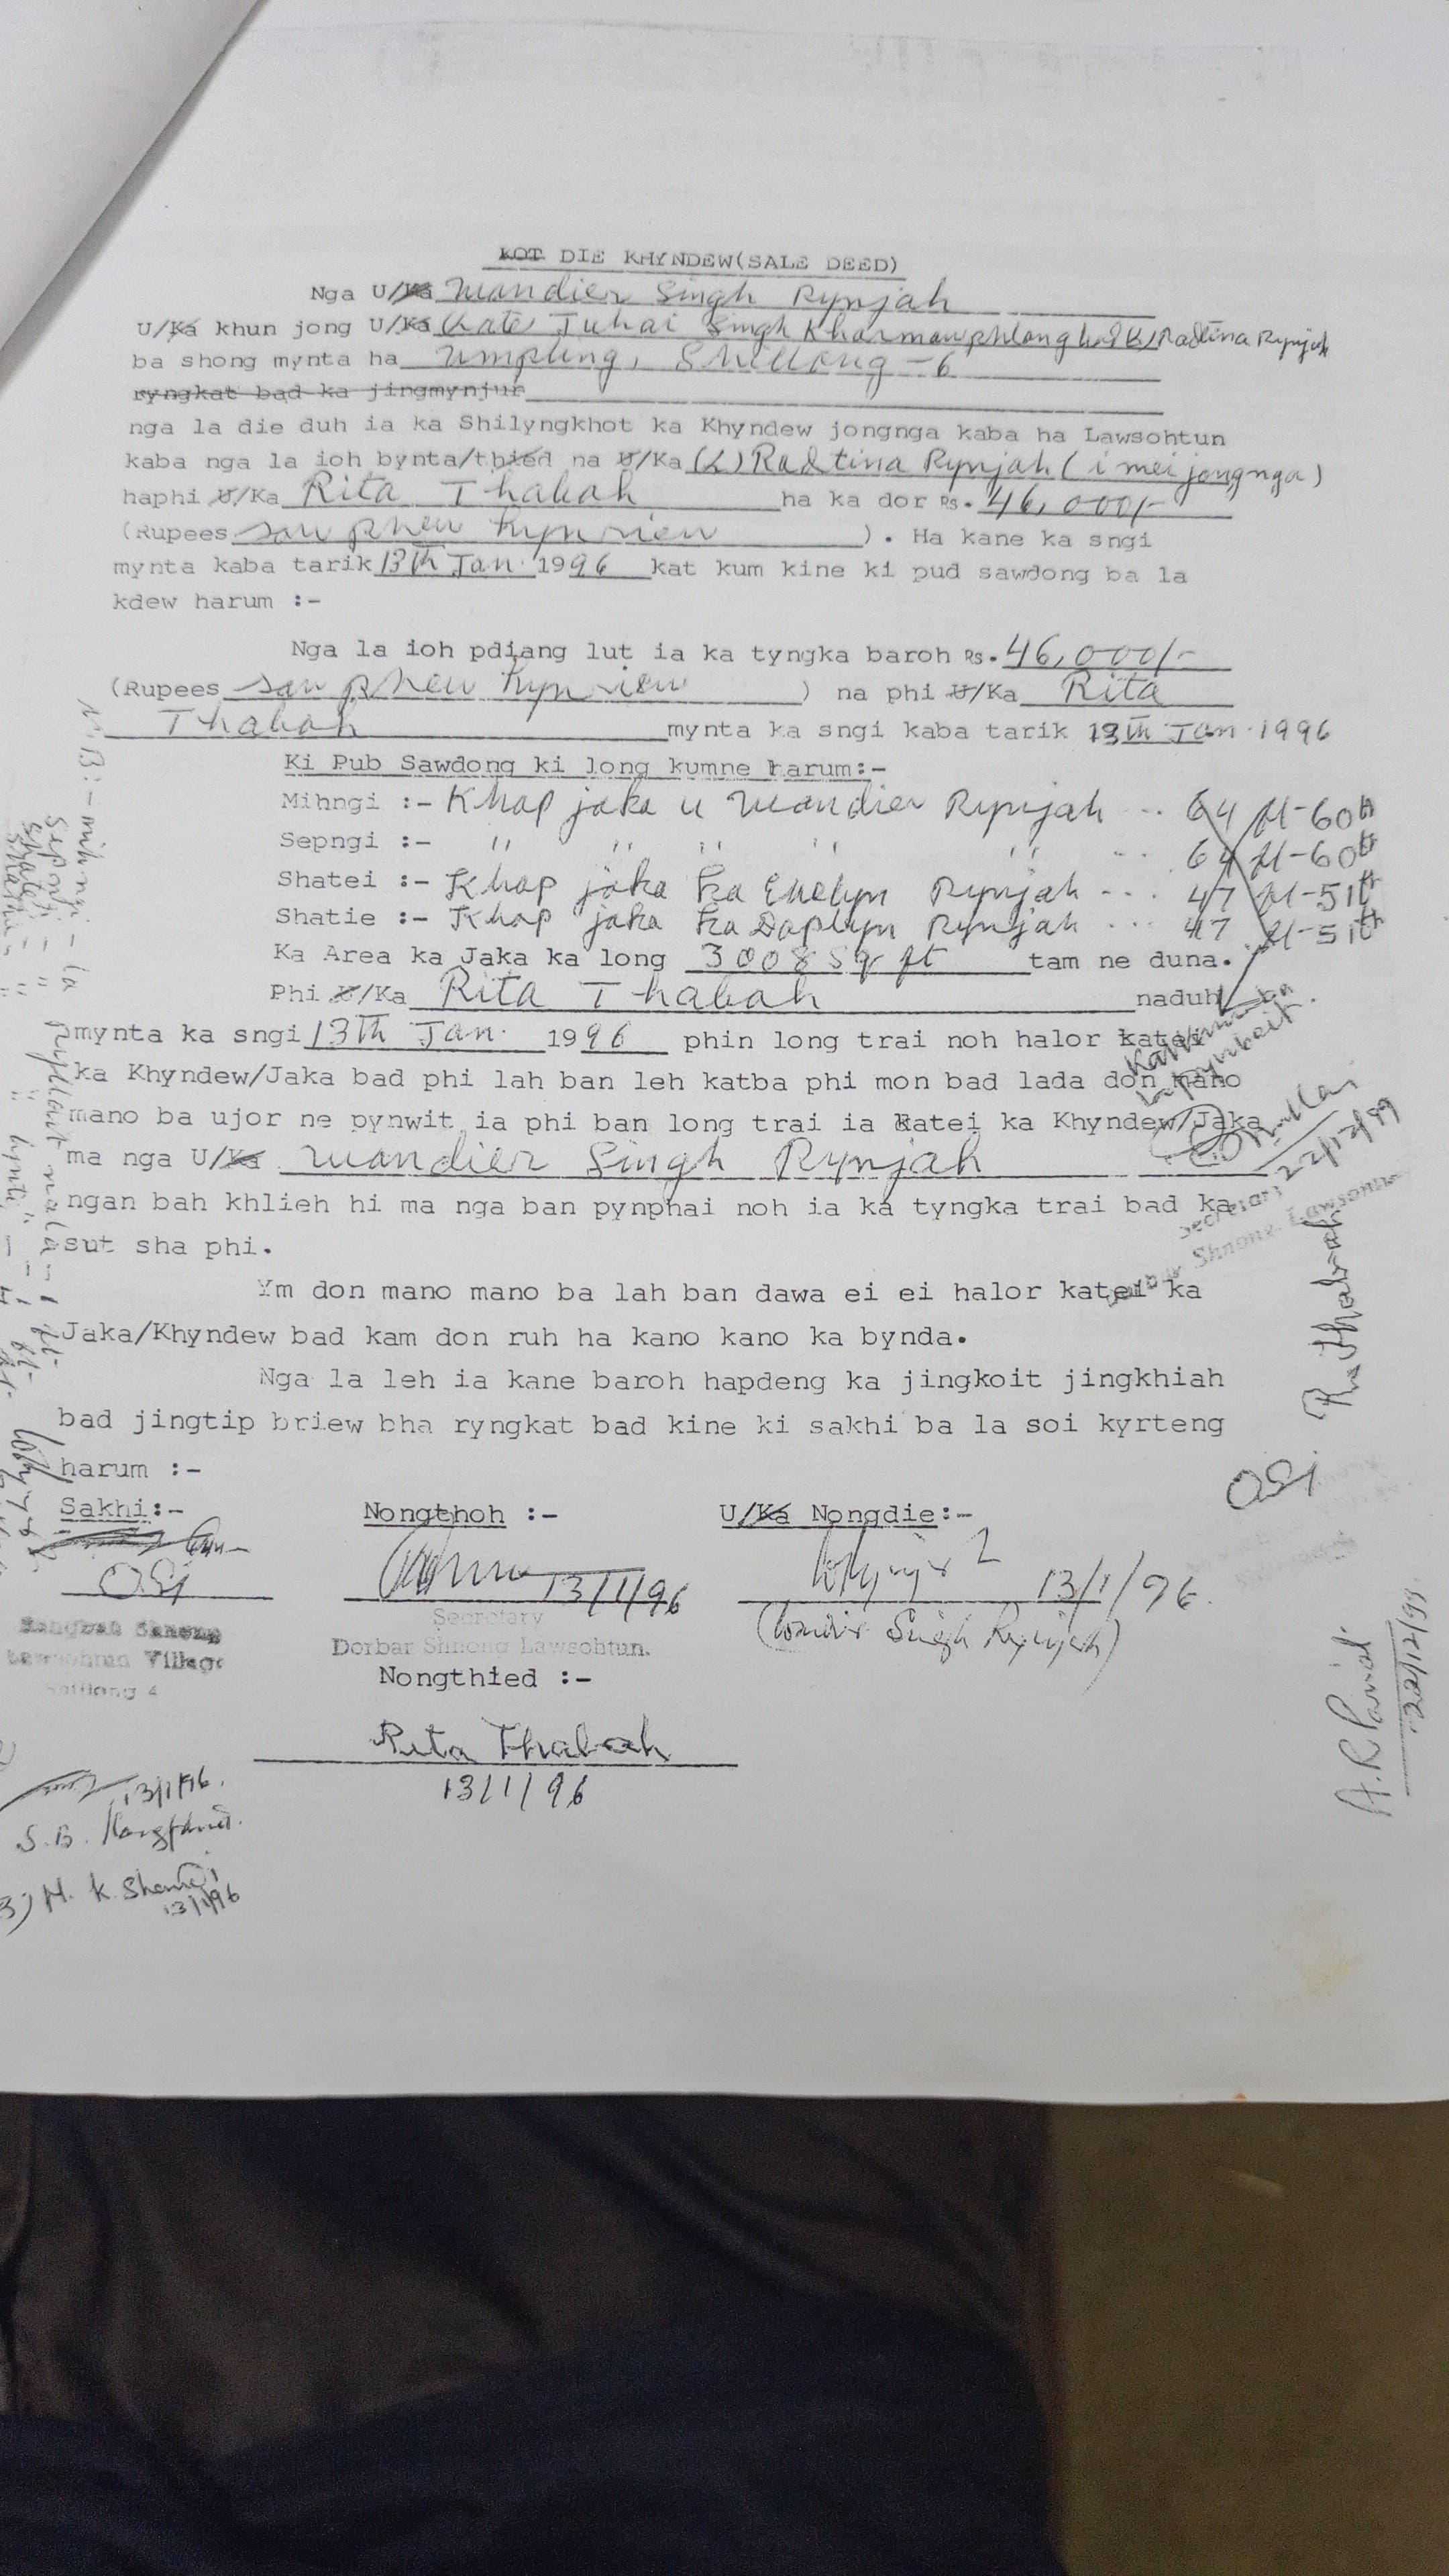 KOT DIE KHYNDEW(SALE DEED)
Nga U/Ka Wandier Singh Rynjah
U/Ka khun jong U/Ka (Late) Juhai Singh Kharmawphlang bad (L) Radtina Rynjah
ba shong mynta ha Umpling, Shillong - 6
ryngkat bad ka jingmynjur
nga la die duh ia ka Shilyngkhot ka Khyndew jongnga kaba ha Lawsohtun
kaba nga la ioh bynta/thied na U/Ka (L) Radtina Rynjah (i mei jongnga)
haphi U/Ka Rita Thabah ha ka dor Rs. 46,000/-
(Rupees sawphew hynriew ). Ha kane ka sngi
mynta kaba tarik 13th Jan. 1996 kat kum kine ki pud sawdong ba la
kdew harum :-
Nga la ioh pdiang lut ia ka tyngka baroh Rs. 46,000/-
(Rupees sawphew hynriew ) na phi U/Ka Rita
Thabah mynta ka sngi kaba tarik 13th Jan. 1996
Ki Pub Sawdong ki long kumne harum:-
Mihngi :- Khap jaka u Wandier Rynjah ... 64 ft - 60 ft
Sepngi :- " " " " " ... 64 ft - 60 ft
Shatei :- Khap jaka ka Evelyn Rynjah ... 47 ft - 51 ft
Shatie :- Khap jaka ka Daphyn Rynjah ... 47 ft - 51 ft
Ka Area ka Jaka ka long 3008 Sq ft tam ne duna.
Phi U/Ka Rita Thabah naduh
mynta ka sngi 13th Jan. 1996 phin long trai noh halor katei
ka Khyndew/Jaka bad phi lah ban leh katba phi mon bad lada don mano
mano ba ujor ne pynwit ia phi ban long trai ia katei ka Khyndew/Jaka
ma nga U/Ka Wandier Singh Rynjah
22/12/99
ngan bah khlieh hi ma nga ban pynphai noh ia ka tyngka trai bad ka
sut sha phi.
Secretary
Shnong Lawsohtun
Ym don mano mano ba lah ban dawa ei ei halor katei ka
Jaka/Khyndew bad kam don ruh ha kano kano ka bynda.
Nga la leh ia kane baroh hapdeng ka jingkoit jingkhiah
bad jingtip briew bha ryngkat bad kine ki sakhi ba la soi kyrteng
harum :-
Sakhi:-
Nongthoh :-
U/Ka Nongdie:-
13/1/96
13/1/96
Secretary
Dorbar Shnong Lawsohtun.
Rangbah Shnong
Lawsohtun Village
Shillong 4
Nongthied :-
Rita Thabah
13/1/96
13/1/96
S.B.
3) H. K.
13/1/96
N.B:- mihngi - la pyllait na la
Sepngi - " "
R. Thabah
22/12/99